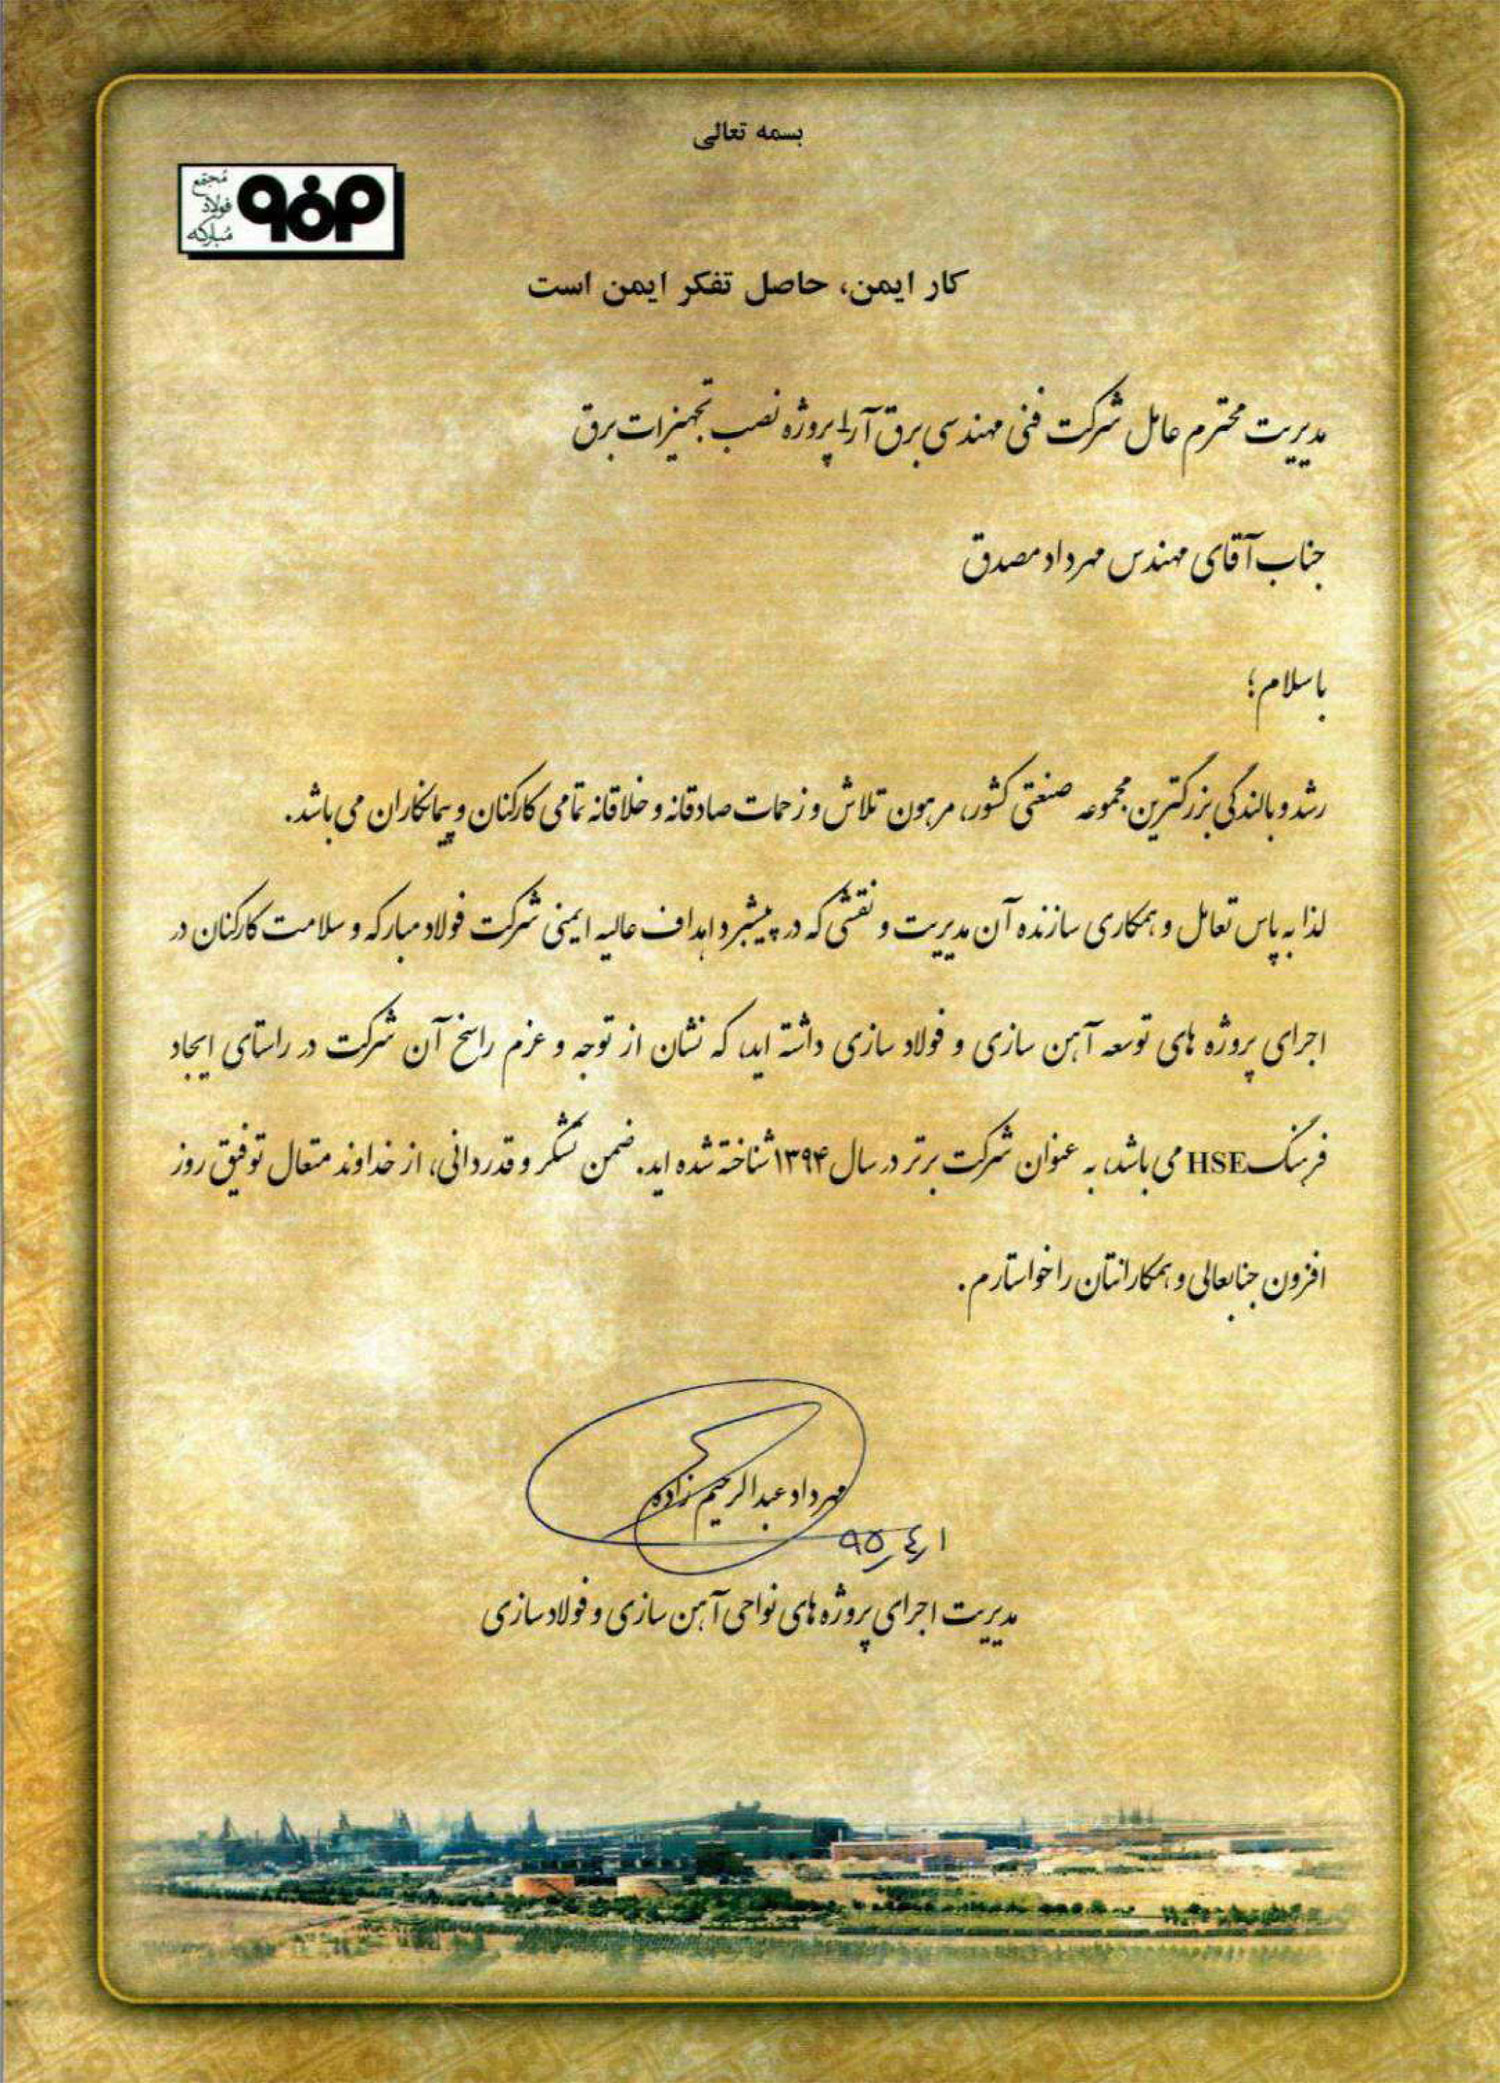 بسمه تعالی
مجتمع
فولاد
مبارکه
کار ایمن، حاصل تفکر ایمن است
مدیریت محترم عامل شرکت فنی مهندسی برق آرا-پروژه نصب تجهیزات برق
جناب آقای مهندس مهرداد مصدق
با سلام؛
رشد و بالندگی بزرگترین مجموعه صنعتی کشور، مرهون تلاش و زحمات صادقانه و خلاقانه تمامی کارکنان و پیمانکاران می باشد.
لذا به پاس تعامل و همکاری سازنده آن مدیریت و نقشی که در پیشبرد اهداف عالیه ایمنی شرکت فولاد مبارکه و سلامت کارکنان در
اجرای پروژه های توسعه آهن سازی و فولاد سازی داشته اید، که نشان از توجه و عزم راسخ آن شرکت در راستای ایجاد
فرهنگ HSE می باشد، به عنوان شرکت برتر در سال ۱۳۹۴ شناخته شده اید. ضمن تشکر و قدردانی، از خداوند متعال توفیق روز
افزون جنابعالی و همکارانتان را خواستارم.
مهرداد عبدالرحیم زاده
۹۵/۴/۱
مدیریت اجرای پروژه های نواحی آهن سازی و فولاد سازی